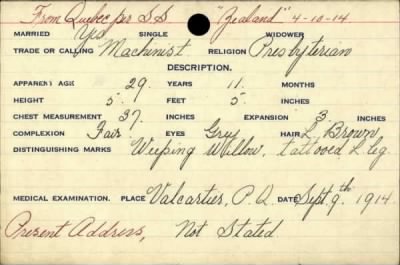 From Quebec per S.S. "Zealand" 4-10-14
MARRIED Yes SINGLE WIDOWER
TRADE OR CALLING Machinist RELIGION Presbyterian
DESCRIPTION.
APPARENT AGE 29 YEARS 11 MONTHS
HEIGHT 5 FEET 5 INCHES
CHEST MEASUREMENT 37 INCHES EXPANSION 3 INCHES
COMPLEXION Fair EYES Grey HAIR L. Brown
DISTINGUISHING MARKS Weeping Willow, tattooed L leg.
MEDICAL EXAMINATION. PLACE Valcartier, P.Q. DATE Sept. 9th 1914.
Present Address, Not Stated